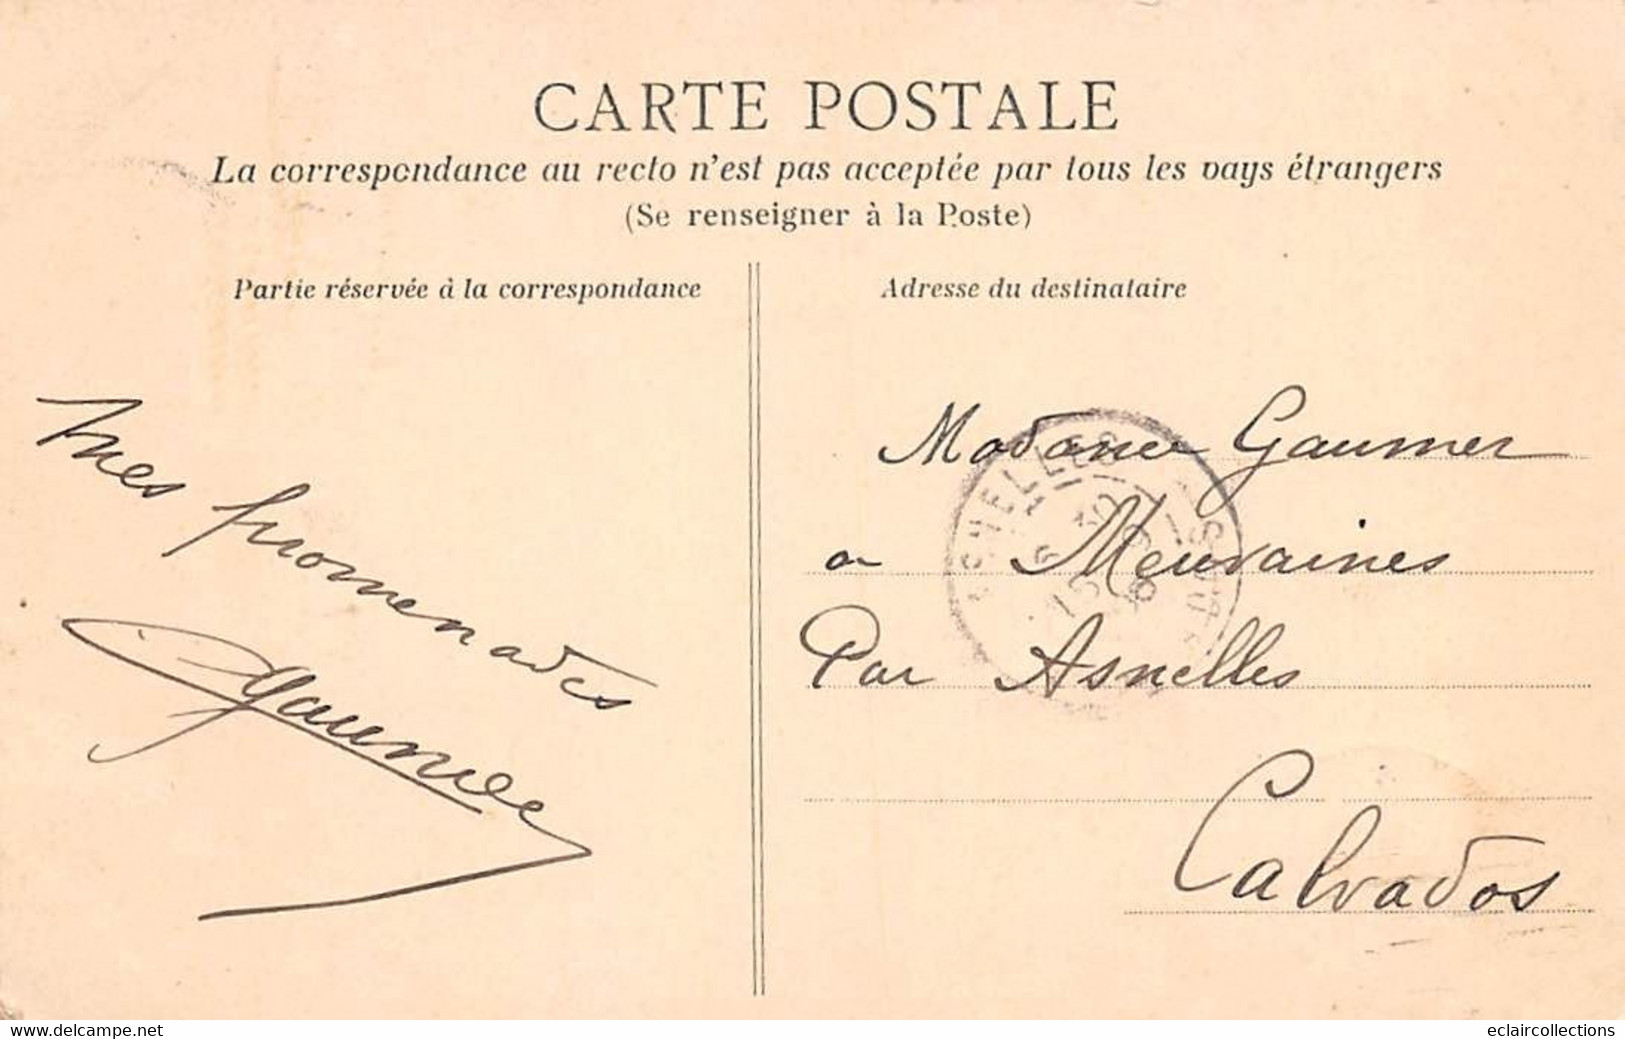 CARTE POSTALE
La correspondance au recto n'est pas acceptée par tous les pays étrangers
(Se renseigner à la Poste)
Partie réservée à la correspondance
Adresse du destinataire
Mes promenades
Gaumer
Madame Gaumer
a Meuvaines
Par Asnelles
Calvados
www.delcampe.net
eclaircollections